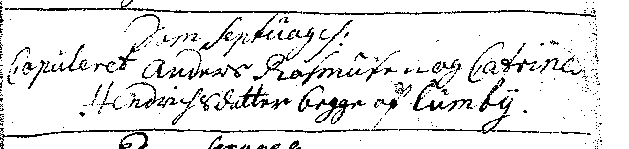 Dom Septuages:
Copuleret Anders Rasmusen og Catrine
Hendrichsdatter begge af Lumby.